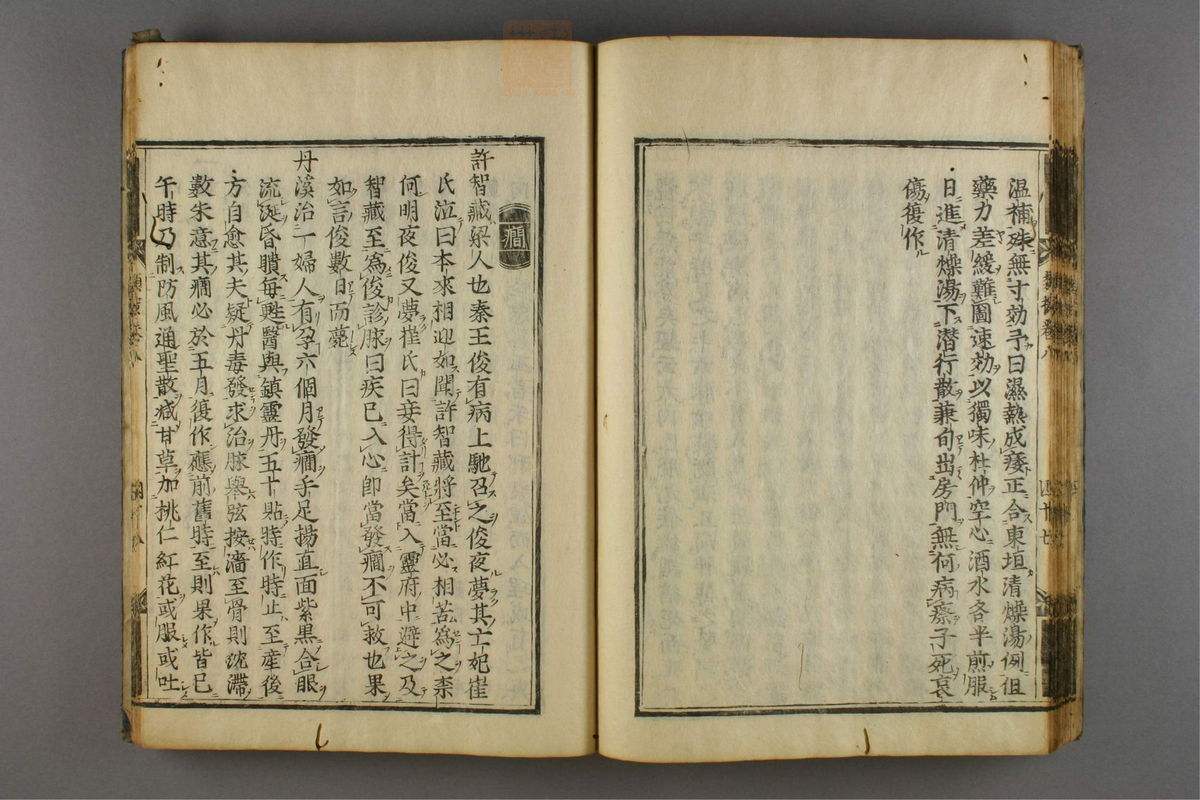 温補殊無寸効予曰濕熱成痿正合東垣清燥湯例但
藥力差緩難圖速効以獨味杜仲空心酒水各半煎服
日進清燥湯下潜行散兼旬出房門無何病瘵子死哀
傷復作
癇
許智藏梁人也秦王俊有病上馳召之俊夜夢其亡妃崔
氏泣曰本來相迎如聞許智藏將至當必相苦為之柰
何明夜俊又夢崔氏曰妾得計矣當入靈府中避之及
智藏至為俊診脉曰疾已入心即當發癇不可救也果
如言俊數日而薨
丹溪治一婦人有孕六個月發癇手足揚直面紫黒合眼
流涎昏瞶每甦醫與鎮靈丹五十貼時作時止至産後
方自愈其夫疑丹毒發求治脉舉弦按濇至骨則沈滯
數朱意其癇必於五月復作應前舊時至則果作皆巳
午時乃制防風通聖散减甘草加桃仁紅花或服或吐